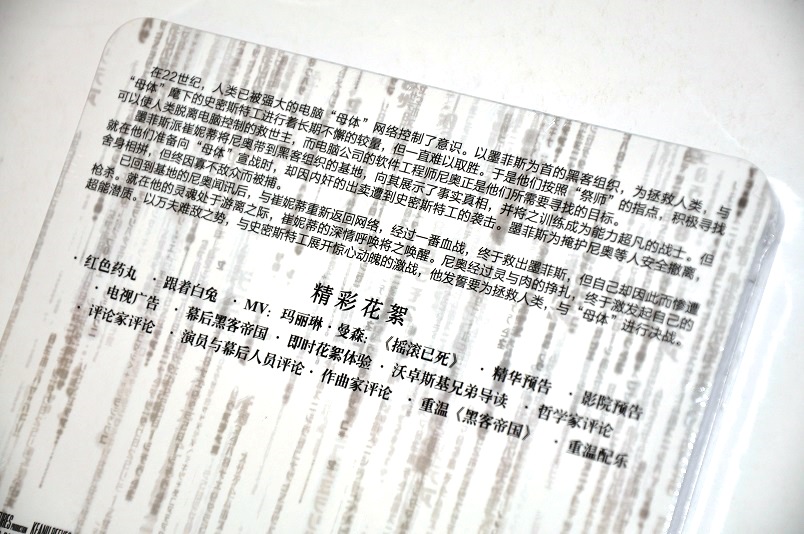 在22世纪，人类已被强大的电脑“母体”网络控制了意识。以墨菲斯为首的黑客组织，为拯救人类，与
“母体”麾下的史密斯特工进行着长期不懈的较量，但一直难以取胜。于是他们按照“祭师”的指点，积极寻找
可以使人类脱离电脑控制的救世主，而电脑公司的软件工程师尼奥正是他们所需要寻找的目标。
墨菲斯派崔妮蒂将尼奥带到黑客组织的基地，向其展示了事实真相，并将之训练成为能力超凡的战士。但
就在他们准备向“母体”宣战时，却因内奸的出卖遭到史密斯特工的袭击。墨菲斯为掩护尼奥等人安全撤离，
舍身相拼，但终因寡不敌众而被捕。
已回到基地的尼奥闻讯后，与崔妮蒂重新返回网络，经过一番血战，终于救出墨菲斯，但自己却因此而惨遭
枪杀。就在他的灵魂处于游离之际，崔妮蒂的深情呼唤将之唤醒。尼奥经过灵与肉的挣扎，终于激发起自己的
超能潜质。以万夫难敌之势，与史密斯特工展开惊心动魄的激战，他发誓要为拯救人类，与“母体”进行决战。
精彩花絮
·红色药丸 ·跟着白兔 ·MV：玛丽琳·曼森：《摇滚已死》 ·精华预告 ·影院预告
·电视广告 ·幕后黑客帝国 ·即时花絮体验 ·沃卓斯基兄弟导读 ·哲学家评论
·评论家评论 ·演员与幕后人员评论 ·作曲家评论 ·重温《黑客帝国》 ·重温配乐